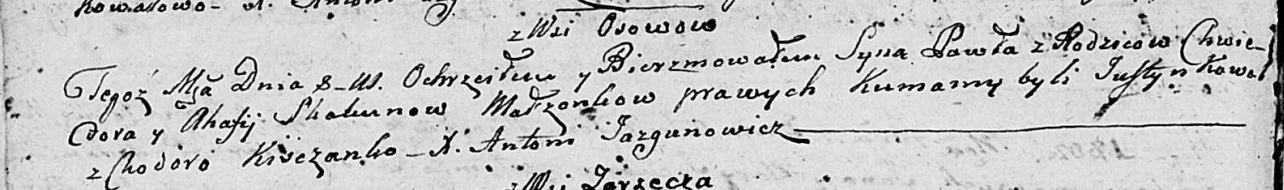 Kowalowo - X. Antoni
z Wsi Osowow
Tegoż Mja Dnia 8-us. Ochrzciłem y Bierzmowałem Syna Pawła z Rodzicow Chwie-
dora y Ahafij Skakunow Małżonkow prawych Kumamy byli Justyn Kowal
z Chodoro Kisczanko - X. Antoni Jazgunowicz
z Wsi Zarzecza